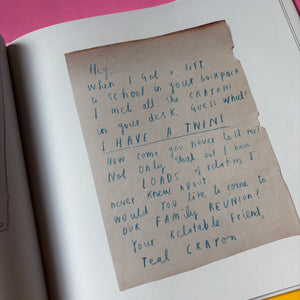 Hey,
When I got a lift
to school in your backpack
I met all the CRAYONS
in your desk. Guess what?
I HAVE A TWIN!
How come you never told me?
Not only that but I have
LOADS of relatives I
never knew about.
Would you like to come to
our FAMILY REUNION?
Your Relatable Friend,
Teal CRAYON